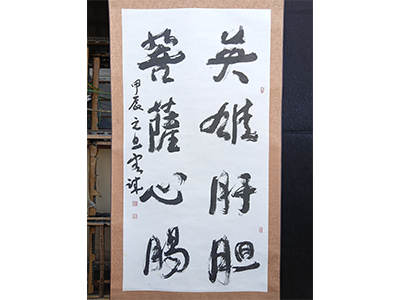 英雄肝胆
菩薩心腸
甲辰元旦